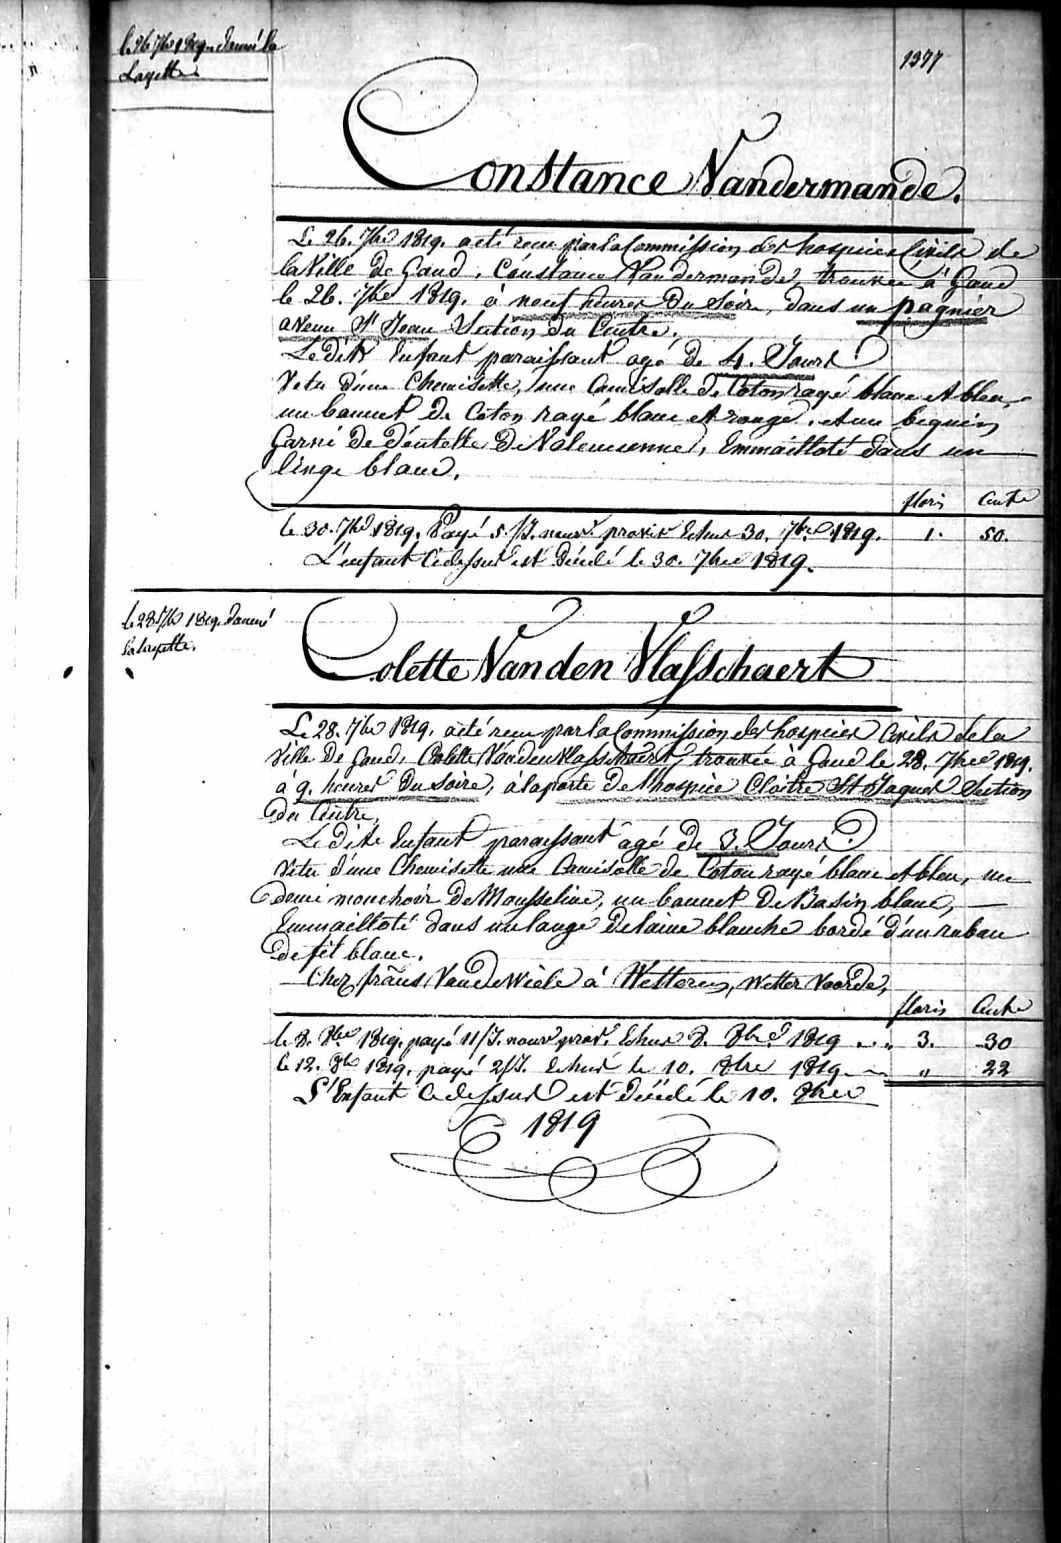 le 26 7bre 1819. donné la
Layette.
1377
Constance Vandermande.
Le 26. 7bre 1819. a été recu par la Commission des hospices Civils de
la Ville de Gand, Constance Vandermande, trouvée à Gand
le 26. 7bre 1819. à neuf heures du Soire, dans un pagnier
avenu St Jean Section du Centre,
Le dit Enfant paraissant agé de 4. Jours
Vetu d'une Chemisette, une Camisolle de Coton rayé blanc et bleu,
un bonnet de Coton rayé blanc et rouge, et un beguin
Garni de déntelle de Valencienne, Emmailloté dans un
linge blanc.
floris Cents
le 30. 7bre 1819. Payé 5./J. nour. provis. Echus 30. 7bre 1819. 1. 50.
L'enfant Cidessus est décédé le 30. 7bre 1819.
le 28 7bre 1819. donné
la layette.
Colette Vanden Vlasschaert
Le 28. 7bre 1819. a été recu par la Commission des hospices Civils de la
Ville de Gand, Colette Vanden Vlasschaert, trouvée à Gand le 28. 7bre 1819.
à 9. heures du Soire, à la porte de l'hospice Cloitre St Jaques Section
du Centre,
Le dit Enfant paraissant âgé de 3. Jours
Vetu d'une Chemisette une Camisolle de Coton rayé blanc et bleu, un
demi mouchoir de Mousseline, un bonnet de Basin blanc,
Emmailloté dans un lange de laine blanche bordé d'un ruban
de fil blanc.
Chez frans Van de Wiele à Wetteren, Wetter Voorde,
floris Cents
le 8. 8bre 1819. payé 11/J. nour. prov. Echus 8. 8bre 1819 . . „ 3. 30
le 12. 8bre 1819. payé 2/J. Echus le 10. 8bre 1819. „ 22
L'Enfant Cidessus est décédé le 10. 8bre
1819